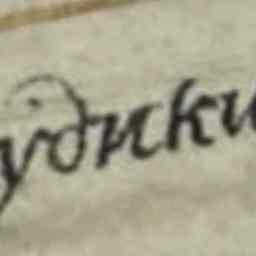 удики